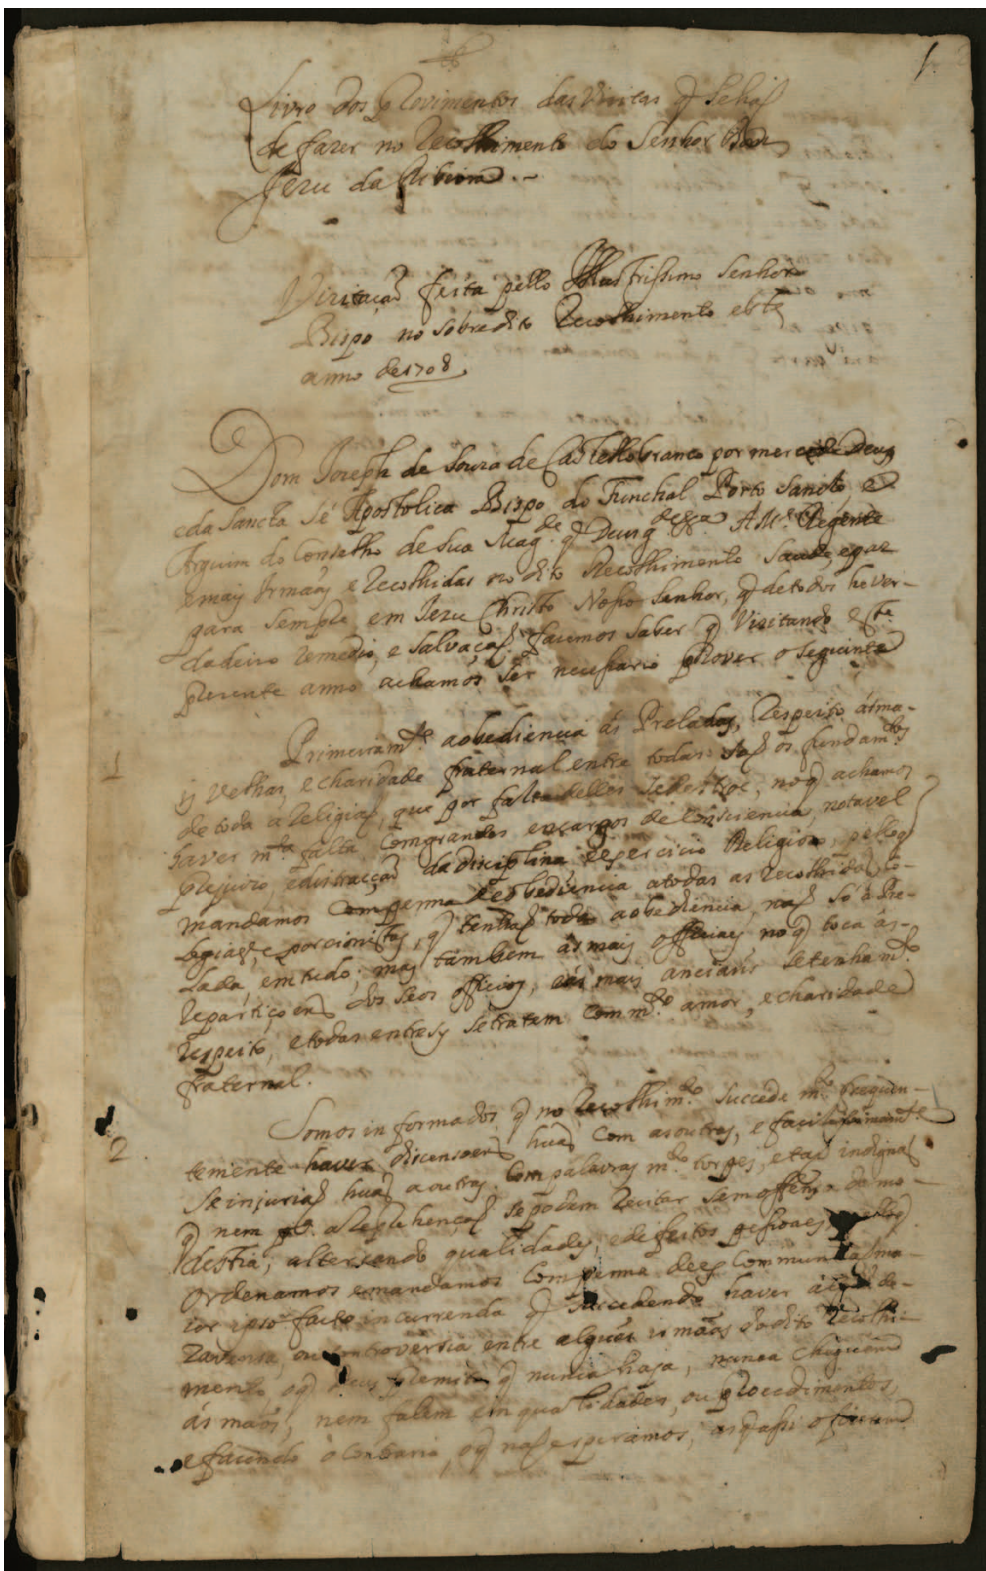 1.
Livro dos Provimentos das Vizitas q̃ Sehaõ
de fazer no Recolhimento do Senhor Bom
Jezu da Ribeira.
Vizitaçaõ feita pello Illustrissimo Senhor
Bispo no sobredito Recolhimento este
anno de 1708.
Dom Joseph de Souza de Castellobranco por merce de Deus
e da Sancta Sé Apostolica Bispo do Funchal Porto Sancto, e
Arguim do Conselho de Sua Mag.de q̃ Deus g.de &.a A M.e Regente
e mais Irmãas e Recolhidas no dito Recolhimento Saude, e paz
para sempre em Jezu Christo Nosso Senhor, q̃ de todos he ver-
dadeiro remedio, e salvaçaõ. facemos saber q̃ Vizitando este
prezente anno achamos ser necessario prover o seguinte
1 Primeiram.te a obediencia ás Preladas, respeito ás ma-
is velhas, e charidade fraternal entre todas saõ os fundam.tos
de toda a religiaõ, que por falta delles se destroe, no q̃ achamos
haver m.ta falta com grandes encargos de consciencia, notavel
prejuizo, e distracçaõ da disciplina e exercicio Religioso, pello q̃
mandamos com penna de obediencia a todas as recolhidas, co-
legiaes, e porcionistas, q̃ tenhaõ toda a obediencia, naõ só á Pre-
lada, em tudo; mas tambem ás mais officiaes no q̃ toca ás
repartiçoens dos seos officios, e ás mais anciaãs se tenha m.to
respeito, e todas entre sy se tratem com m.to amor, e charidade
fraternal.
2 Somos informados q̃ no Recolhim.to succede m.to frequen-
temente haver discensoens huãs com as outras, e facilissimam.te
se injuriaõ huãs a outras com palavras m.to torpes, e taõ indignas
q̃ nem p.a as reprehençaõ se podem recitar sem offensa da mo-
destia, altercando qualidades, e defeitos pessoaes, pello q̃
ordenamos e mandamos com penna de excommunhaõ ma-
ior ipso facto incurrenda q̃ succedendo haver algũa de-
zavensa, ou controversia entre alguãs irmãas do dito recolhi-
mento, o q̃ Deus premita q̃ nunca haja, nunca cheguem
ás maõs, nem falem em qualidades, ou procedimentos,
e facendo o contrario, o q̃ naõ esperamos, as q̃ assi o fizerem